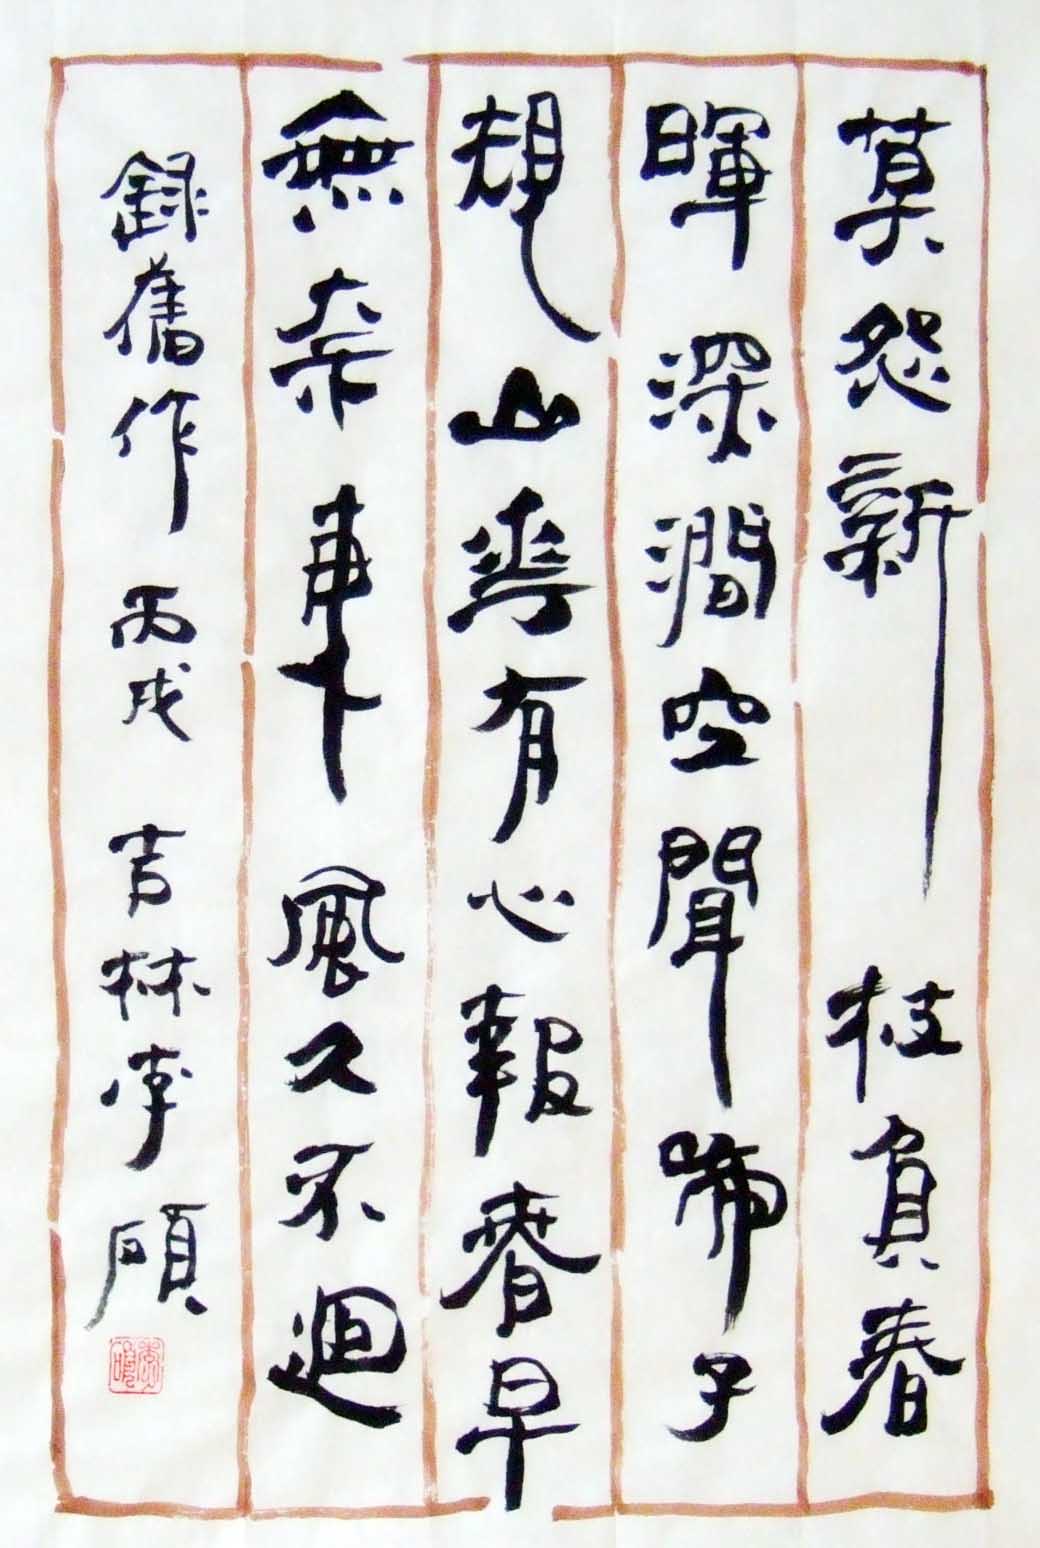 莫怨新枝負春
暉深澗空聞啼子
規山花有心報春早
無奈東風久不迴
錄舊作 丙戌 吉林李碩